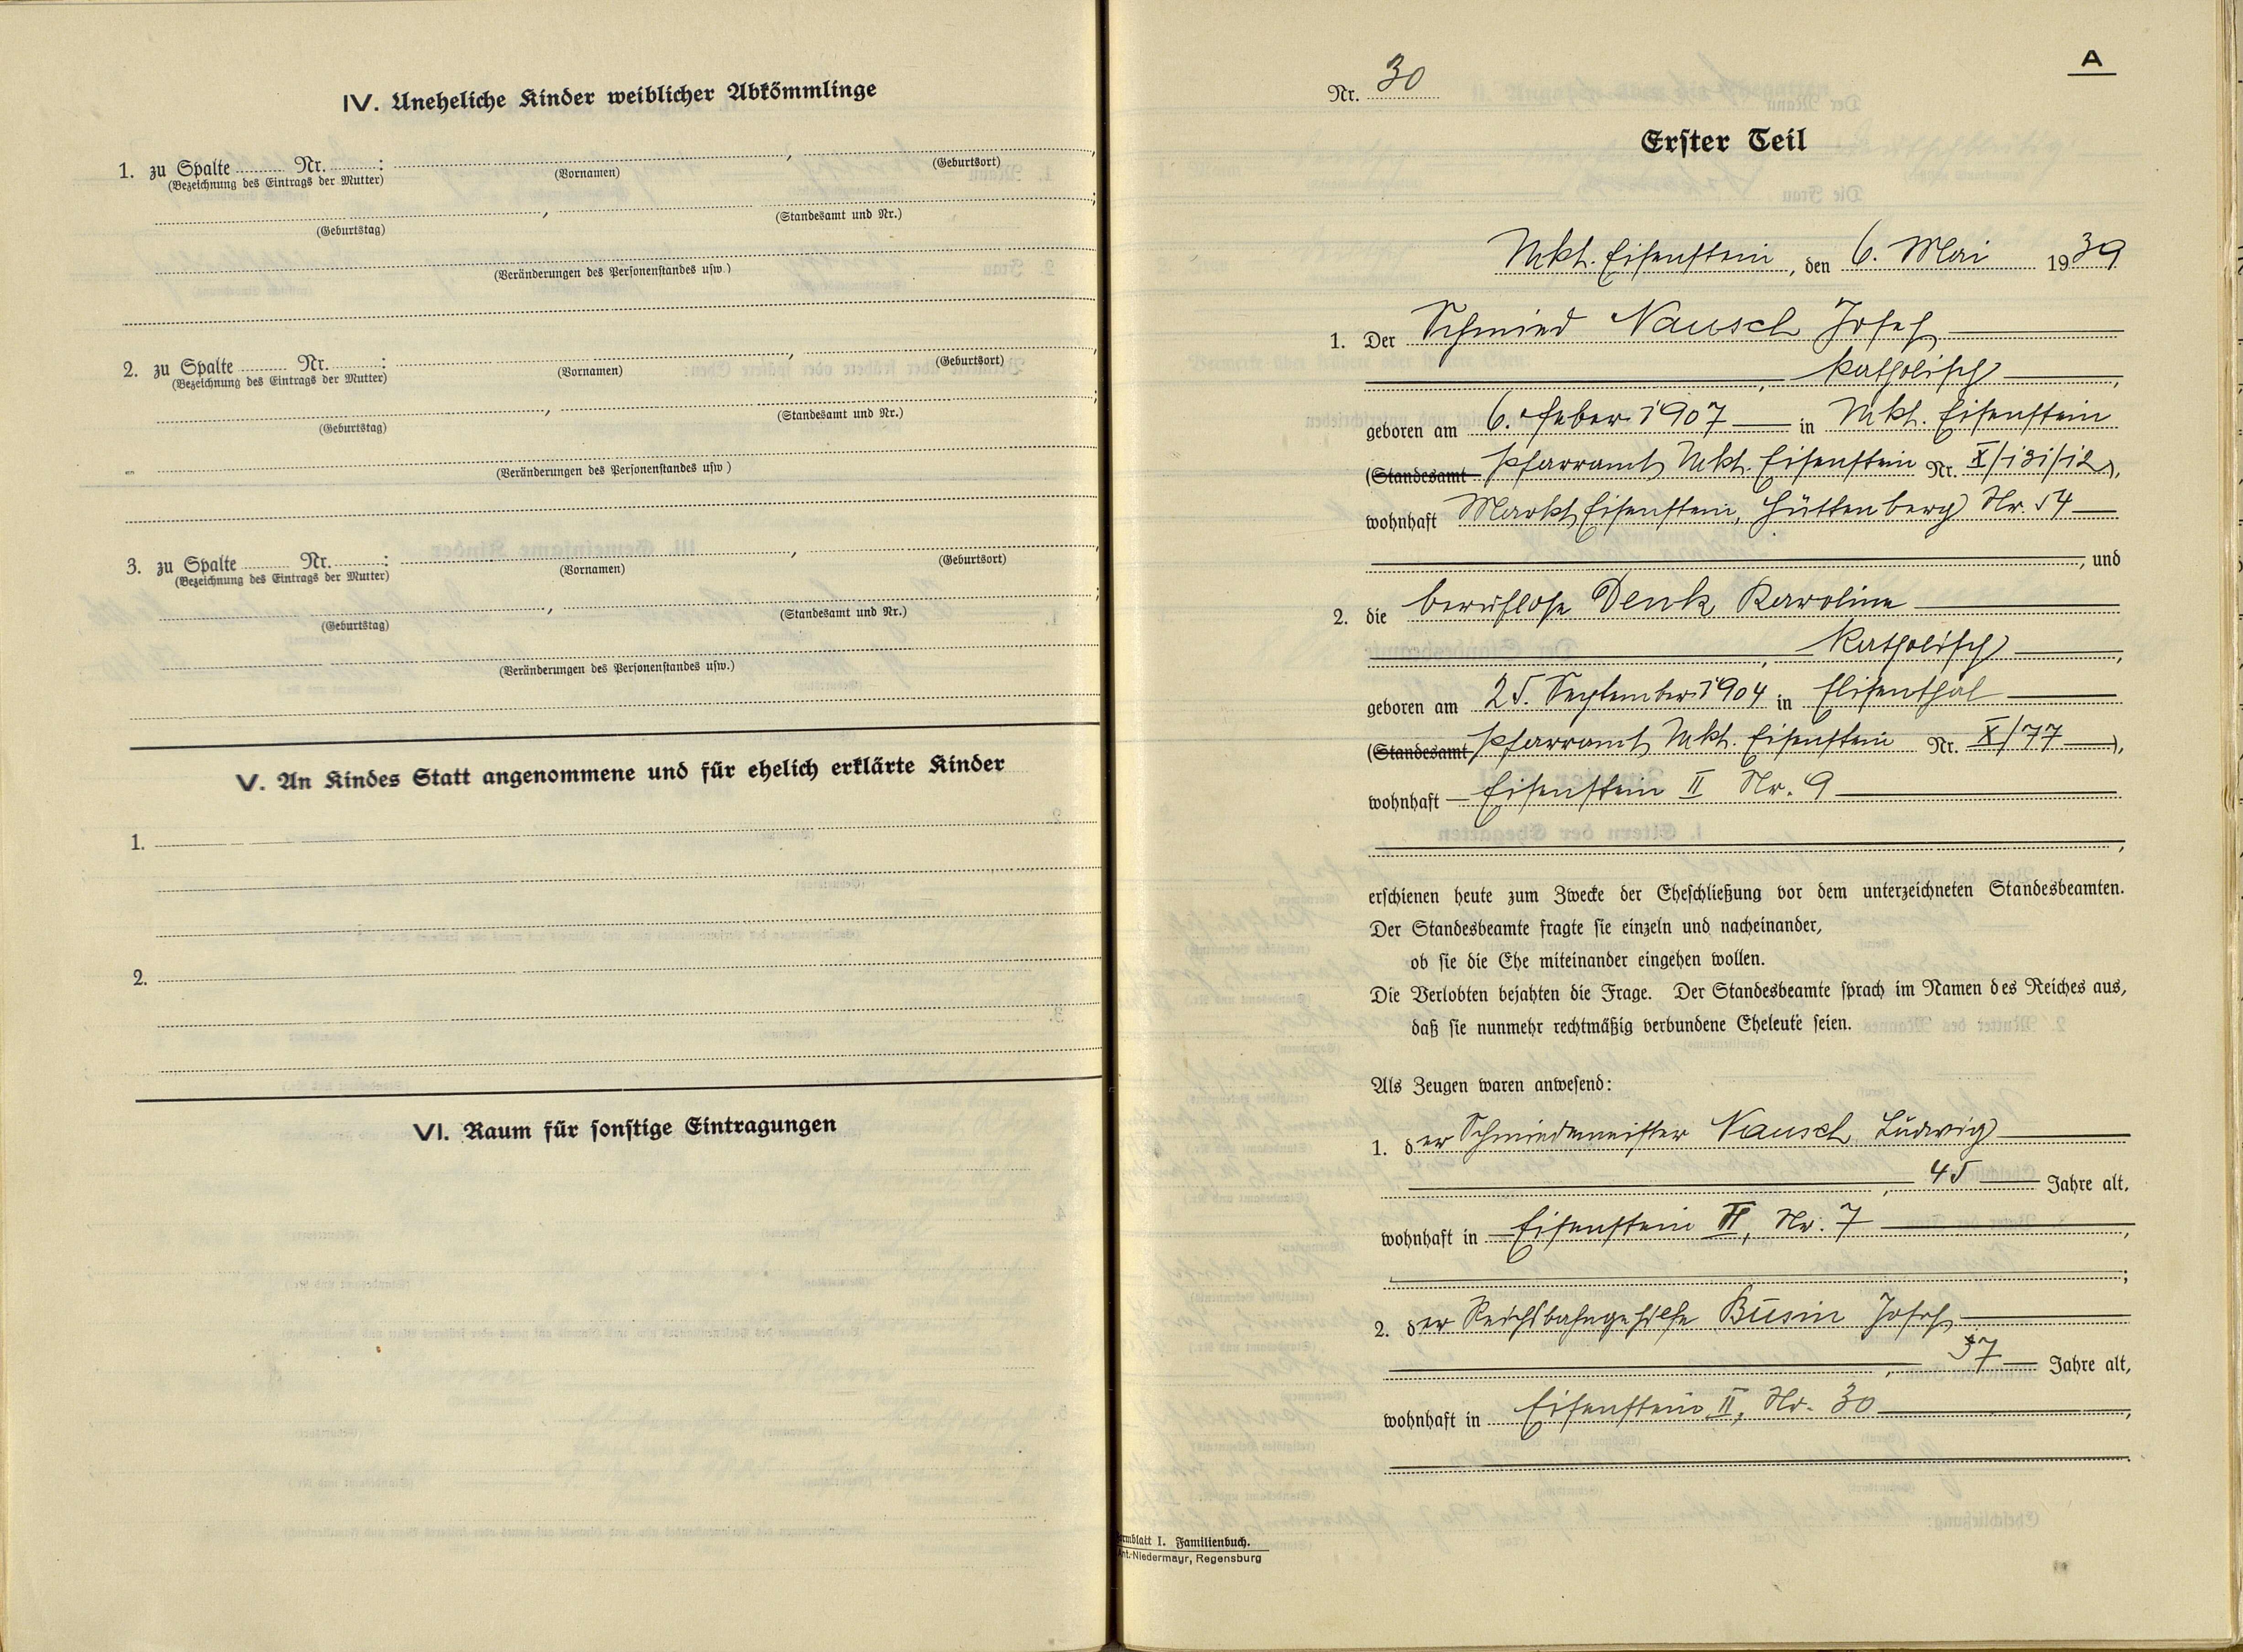 IV. Uneheliche Kinder weiblicher Abkömmlinge
1. zu Spalte ........ Nr. ........:
(Bezeichnung des Eintrags der Mutter) (Vornamen) (Geburtsort)
(Geburtstag) (Standesamt und Nr.)
(Veränderungen des Personenstandes usw.)
2. zu Spalte ........ Nr. ........:
(Bezeichnung des Eintrags der Mutter) (Vornamen) (Geburtsort)
(Geburtstag) (Standesamt und Nr.)
(Veränderungen des Personenstandes usw.)
3. zu Spalte ........ Nr. ........:
(Bezeichnung des Eintrags der Mutter) (Vornamen) (Geburtsort)
(Geburtstag) (Standesamt und Nr.)
(Veränderungen des Personenstandes usw.)
V. An Kindes Statt angenommene und für ehelich erklärte Kinder
1.
2.
VI. Raum für sonstige Eintragungen
A
Nr. 30
Erster Teil
Mkt. Eisenstein, den 6. Mai 1939
1. Der Schmied Nausch Josef
, katholisch,
geboren am 6. Feber 1907 in Mkt. Eisenstein
(Standesamt Pfarramt Mkt. Eisenstein Nr. X/131/12),
wohnhaft Markt Eisenstein, Hüttenberg Nr. 54
, und
2. die berufslose Denk Karoline
, katholisch,
geboren am 25. September 1904 in Elisenthal
(Standesamt Pfarramt Mkt. Eisenstein Nr. X/77),
wohnhaft Eisenstein II Nr. 9
,
erschienen heute zum Zwecke der Eheschließung vor dem unterzeichneten Standesbeamten.
Der Standesbeamte fragte sie einzeln und nacheinander,
ob sie die Ehe miteinander eingehen wollen.
Die Verlobten bejahten die Frage. Der Standesbeamte sprach im Namen des Reiches aus,
daß sie nunmehr rechtmäßig verbundene Eheleute seien.
Als Zeugen waren anwesend:
1. der Schmiedemeister Nausch Ludwig
, 45 Jahre alt,
wohnhaft in Eisenstein II, Nr. 7,
;
2. der Reichsbahngehilfe Busin Josef
, 37 Jahre alt,
wohnhaft in Eisenstein II, Nr. 30,
.
Formblatt I. Familienbuch.
Ant. Niedermayr, Regensburg